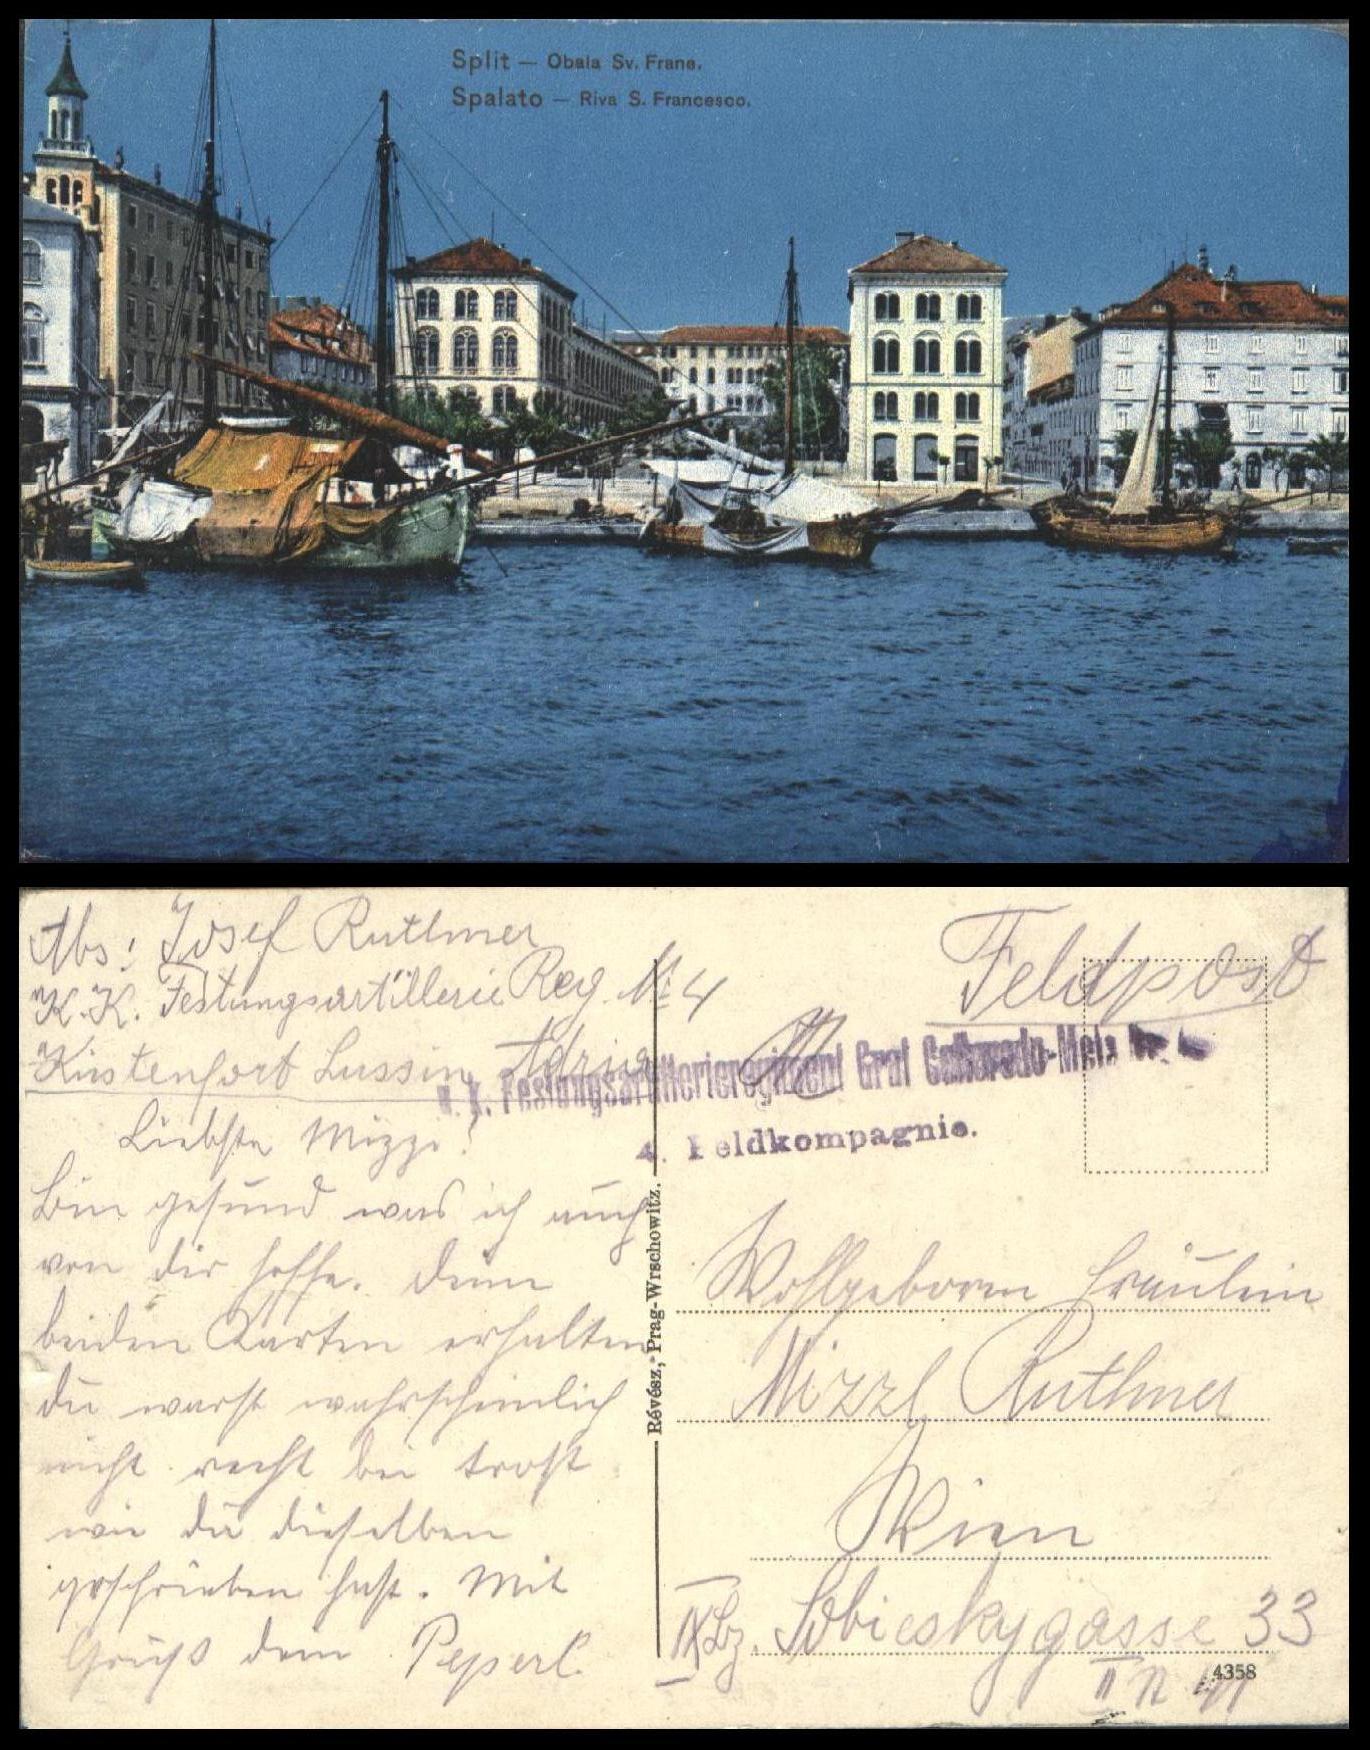 Split — Obala Sv. Frane.
Spalato — Riva S. Francesco.
Abs: Josef Ruthmer
K. K. Festungsartillerie Reg. № 4
Küstenfort Lussin, Adria
Liebste Mizzi!
Bin gesund was ich auch
von dir hoffe. Deine
beiden Karten erhalten
du warst wahrscheinlich
nicht recht bei trost
wie du dieselben
geschrieben hast. Mit
Gruß dein Peperl.
Révész, Prag-Wrschowitz.
Feldpost
k. k. Festungsartillerieregiment Graf Colloredo-Mels Nr. 4
4. Feldkompagnie.
Wohlgeboren Fräulein
Mizzl Ruthmer
Wien
IX Bz. Sobieskygasse 33
II
4358